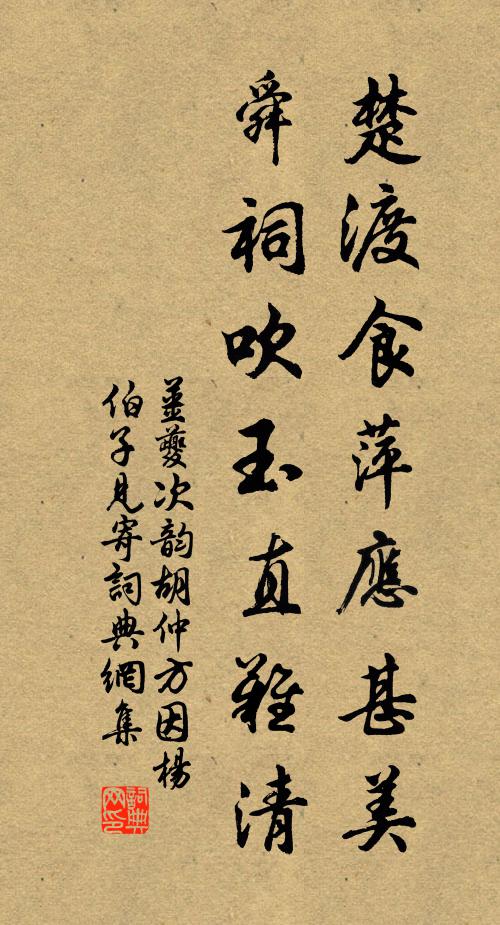 楚渡食萍應甚美
舜祠吹玉直難清
姜夔次韵胡仲方因楊
伯子見寄詞典網集
詞典
网印